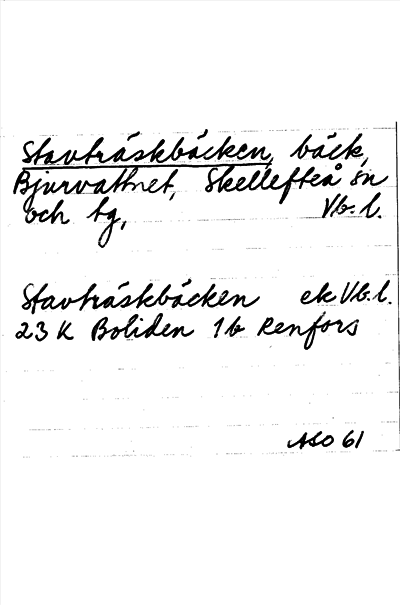 Stavträskbäcken, bäck,
Bjurvattnet, Skellefteå sn
och tg, Vb. l.
Stavträskbäcken ek Vb. l.
23 K Boliden 1b Renfors
ASO 61